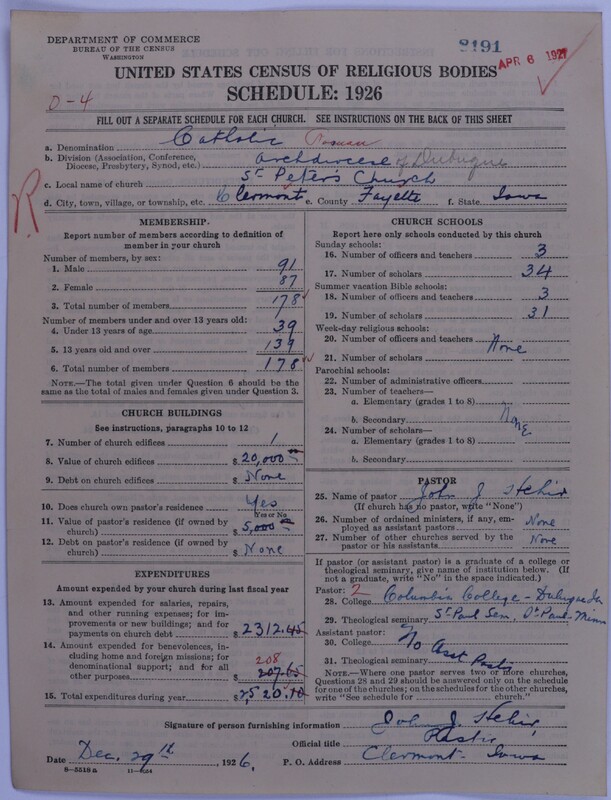 DEPARTMENT OF COMMERCE
BUREAU OF THE CENSUS
WASHINGTON
8191
APR 6 1927
UNITED STATES CENSUS OF RELIGIOUS BODIES
SCHEDULE: 1926
0-4
FILL OUT A SEPARATE SCHEDULE FOR EACH CHURCH. SEE INSTRUCTIONS ON THE BACK OF THIS SHEET
a. Denomination Catholic Roman
b. Division (Association, Conference, Diocese, Presbytery, Synod, etc.) Archdiocese of Dubuque
c. Local name of church St Peter's Church
d. City, town, village, or township, etc. Clermont e. County Fayette f. State Iowa
R
MEMBERSHIP.
Report number of members according to definition of
member in your church
Number of members, by sex:
1. Male 91
2. Female 87
3. Total number of members 178
Number of members under and over 13 years old:
4. Under 13 years of age 39
5. 13 years old and over 139
6. Total number of members 178
NOTE.—The total given under Question 6 should be
the same as the total of males and females given under Question 3.
CHURCH BUILDINGS
See instructions, paragraphs 10 to 12
7. Number of church edifices 1
8. Value of church edifices $ 20,000
9. Debt on church edifices $ None
10. Does church own pastor's residence Yes
Yes or No
11. Value of pastor's residence (if owned by
church) $ 5,000
12. Debt on pastor's residence (if owned by
church) $ None
EXPENDITURES
Amount expended by your church during last fiscal year
13. Amount expended for salaries, repairs,
and other running expenses; for im-
provements or new buildings; and for
payments on church debt $ 2312.45
14. Amount expended for benevolences,
including home and foreign missions; for
denominational support; and for all
other purposes 208 207.65
15. Total expenditures during year $ 2,520.10
CHURCH SCHOOLS
Report here only schools conducted by this church
Sunday schools:
16. Number of officers and teachers 3
17. Number of scholars 34
Summer vacation Bible schools:
18. Number of officers and teachers 3
19. Number of scholars 31
Week-day religious schools:
20. Number of officers and teachers
None
21. Number of scholars
Parochial schools:
22. Number of administrative officers
23. Number of teachers—
a. Elementary (grades 1 to 8)
b. Secondary None
24. Number of scholars—
a. Elementary (grades 1 to 8)
b. Secondary
PASTOR
25. Name of pastor John J
(If church has no pastor, write "None")
26. Number of ordained ministers, if any, em-
ployed as assistant pastors None
27. Number of other churches served by the
pastor or his assistants None
If pastor (or assistant pastor) is a graduate of a college or
theological seminary, give name of institution below. (If
not a graduate, write "No" in the space indicated.)
Pastor: 2
28. College Columbia College - Dubuque Ia
29. Theological seminary St Paul Sem, St Paul - Minn
Assistant pastor:
30. College No
31. Theological seminary Asst Pastor
NOTE.—Where one pastor serves two or more churches,
Questions 28 and 29 should be answered only on the schedule
for one of the churches; on the schedules for the other churches,
write "See schedule for church."
Signature of person furnishing information John J.
Official title Pastor
Date Dec. 29th, 1926. P. O. Address Clermont - Iowa
8-5518a 11-9054